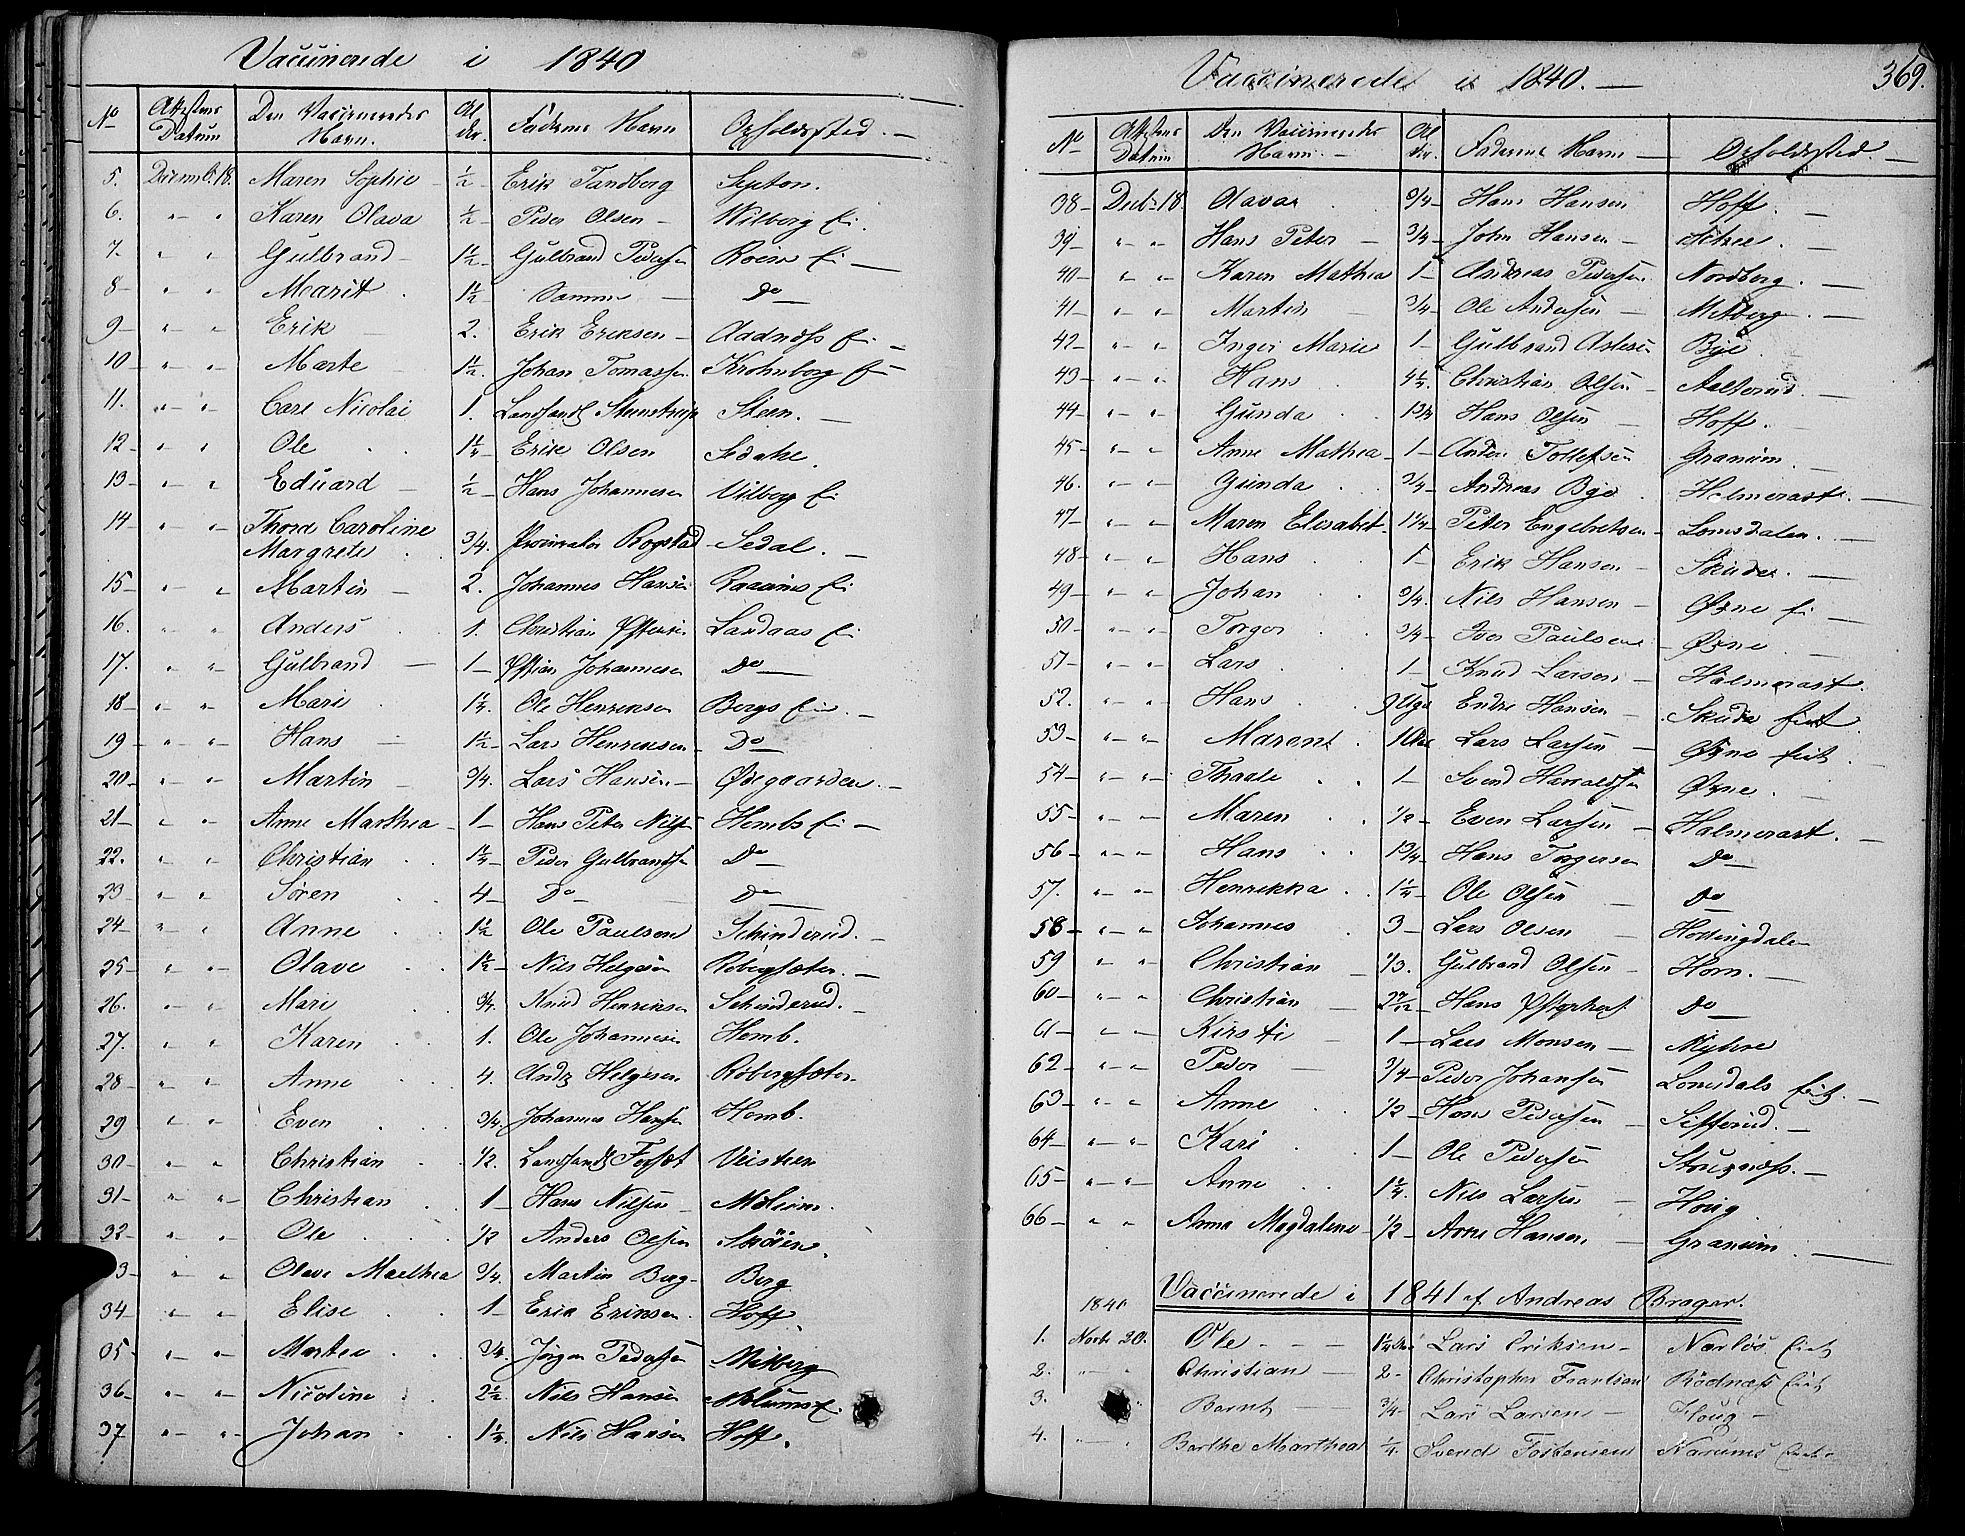 Vaccinerede i 1840
No Attestens Datum Den Vaccineredes Navn. Alder. Faderens Navn Opholdssted.
5. Decemb. 18. Maren Sophie ½ Erik Tandberg
6. " " Karen Olava ½ Peder Olsen Wilberg Ei.
7. " " Gulbrand 1½ Gulbrand Pedersen
8 " " Marit 1½ Samme Do
9 " " Erik 2. Erik Eriksen
10 " " Marte 1½. Johan Tomassen Krohnborg
11. " " Carl Nicolai 1. Steen.
12 " " Ole 1¼ Erik Olsen
13 " " Eduard ½ Hans Johannesen Vilberg Ei
14 " " Thora Caroline
Margrete 3/4. Procurator Rogstad Sedal.
15 " " Martin 2. Johannes Hansen
16. " " Anders 1. Christian Landaas Ei
17. " " Gulbrand 1 Johannesen Do
18 " " Mari 1¼. Ole Henriksen Bergs Ei
19 " " Hans 1½ Lars Henriksen Do
20 " " Martin 3/4. Lars Hansen Ødegaarden.
21 " " Anne Marthea 1 Hans Peter Nilsen Hembs Ei
22. " " Christian 1¼ Peder Gulbrandsen Do
23 " " Søren 4 Do Do
24 " " Anne 1½ Ole Paulsen Schinderud.
25 " " Olave 1½ Nils Helgesen Røbergsæter.
26. " " Mari 3/4. Knud Henriksen Schinderud.
27. " " Karen 1. Ole Johannesen Hemb.
28 " " Anne 4. Helgesen Røbergsæter
29 " " Even 3/4. Johannes Hansen Hemb.
30 " " Christian ½.
31 " " Christian 1 Hans Nilsen
32 " " Ole ½ Anders Olsen Skøien.
3 " " Olave Marthea 3/4. Martin Berg Berg
34 " " Elise 1 Erik Eriksen. Hoff.
35 " " Martea 3/4. Jørgen Pedersen Milberg
36 " " Nicoline 2½. Nils Hansen
37 " " Johan 1¼. Nils Hansen Hoff.
Vaccinerede i 1840. 369.
No Attestens Datum Den Vaccineredes Navn Alder. Faderens Navn Opholdssted.
38 Decb. 18. Olava 3/4 Hans Hansen Hoff.
39 " " Hans Peter 3/4 John Hansen
40 " " Karen Mathea 1 Andreas Pedersen Nordberg.
41 " " Martin 3/4 Ole Andersen Milberg.
42 " " Inger Marie 1 Gulbrand Bye
43 " " Hans Christian Olsen
44 " " Gunda 1 3/4 Hans Olsen Hoff.
45 " " Anne Mathea 1 Anders Tollefsen Granum.
46. " " Gunda 3/4 Andreas Bye Halmerast.
47 " " Maren Elisabet 1¼ Peter Engebretsen Lomsdalen.
48 " " Hans 1 Erik Hansen
49 " " Johan 3/4. Nils Hansen Øxne Ei
50 " " Torger 3/4 Iver Paulsen Øxne.
51 " " Lars 1 Knud Larsen Halmerast.
52. " " Hans Endre Hansen
53 " " Maren Lars Larsen Øxne Eiet
54 " " Thaale 1 Svend Haraldsen Øxne.
55 " " Maren ½ Even Larsen Halmerast.
56 " " Hans 1 3/4 Hans Torgersen Do
57. " " Henrikka 1¼ Ole Olsen Do
58 " " Johannes 3 Lars Olsen
59 " " Christian 1/3. Gulbrand Olsen Horn.
60 " " Christian Hans Do
61 " " Kirsti 1 Lars Monsen Myhre
62 " " Peder 3/4 Peder Johansen Lomsdals Eiet.
63 " " Anne ½ Hans Pedersen Sifferud.
64 " " Kari 1 Ole Pedersen
65 " " Anne 1¼. Nils Larsen Houg
66 " " Anne Magdalene ½ Arne Hansen Granum.
Vaccinerede i 1841 af Andreas Brager.
1840
1. Novb. 20. Ole Lars Eriksen Eiet
2. " " Christian 2 Christopher Rødnæss Eiet
3. Bernt 3/4 Lars Larsen Houg
4. " " Berthe Marthea ¼ Svend Tostensen Narums Eiet